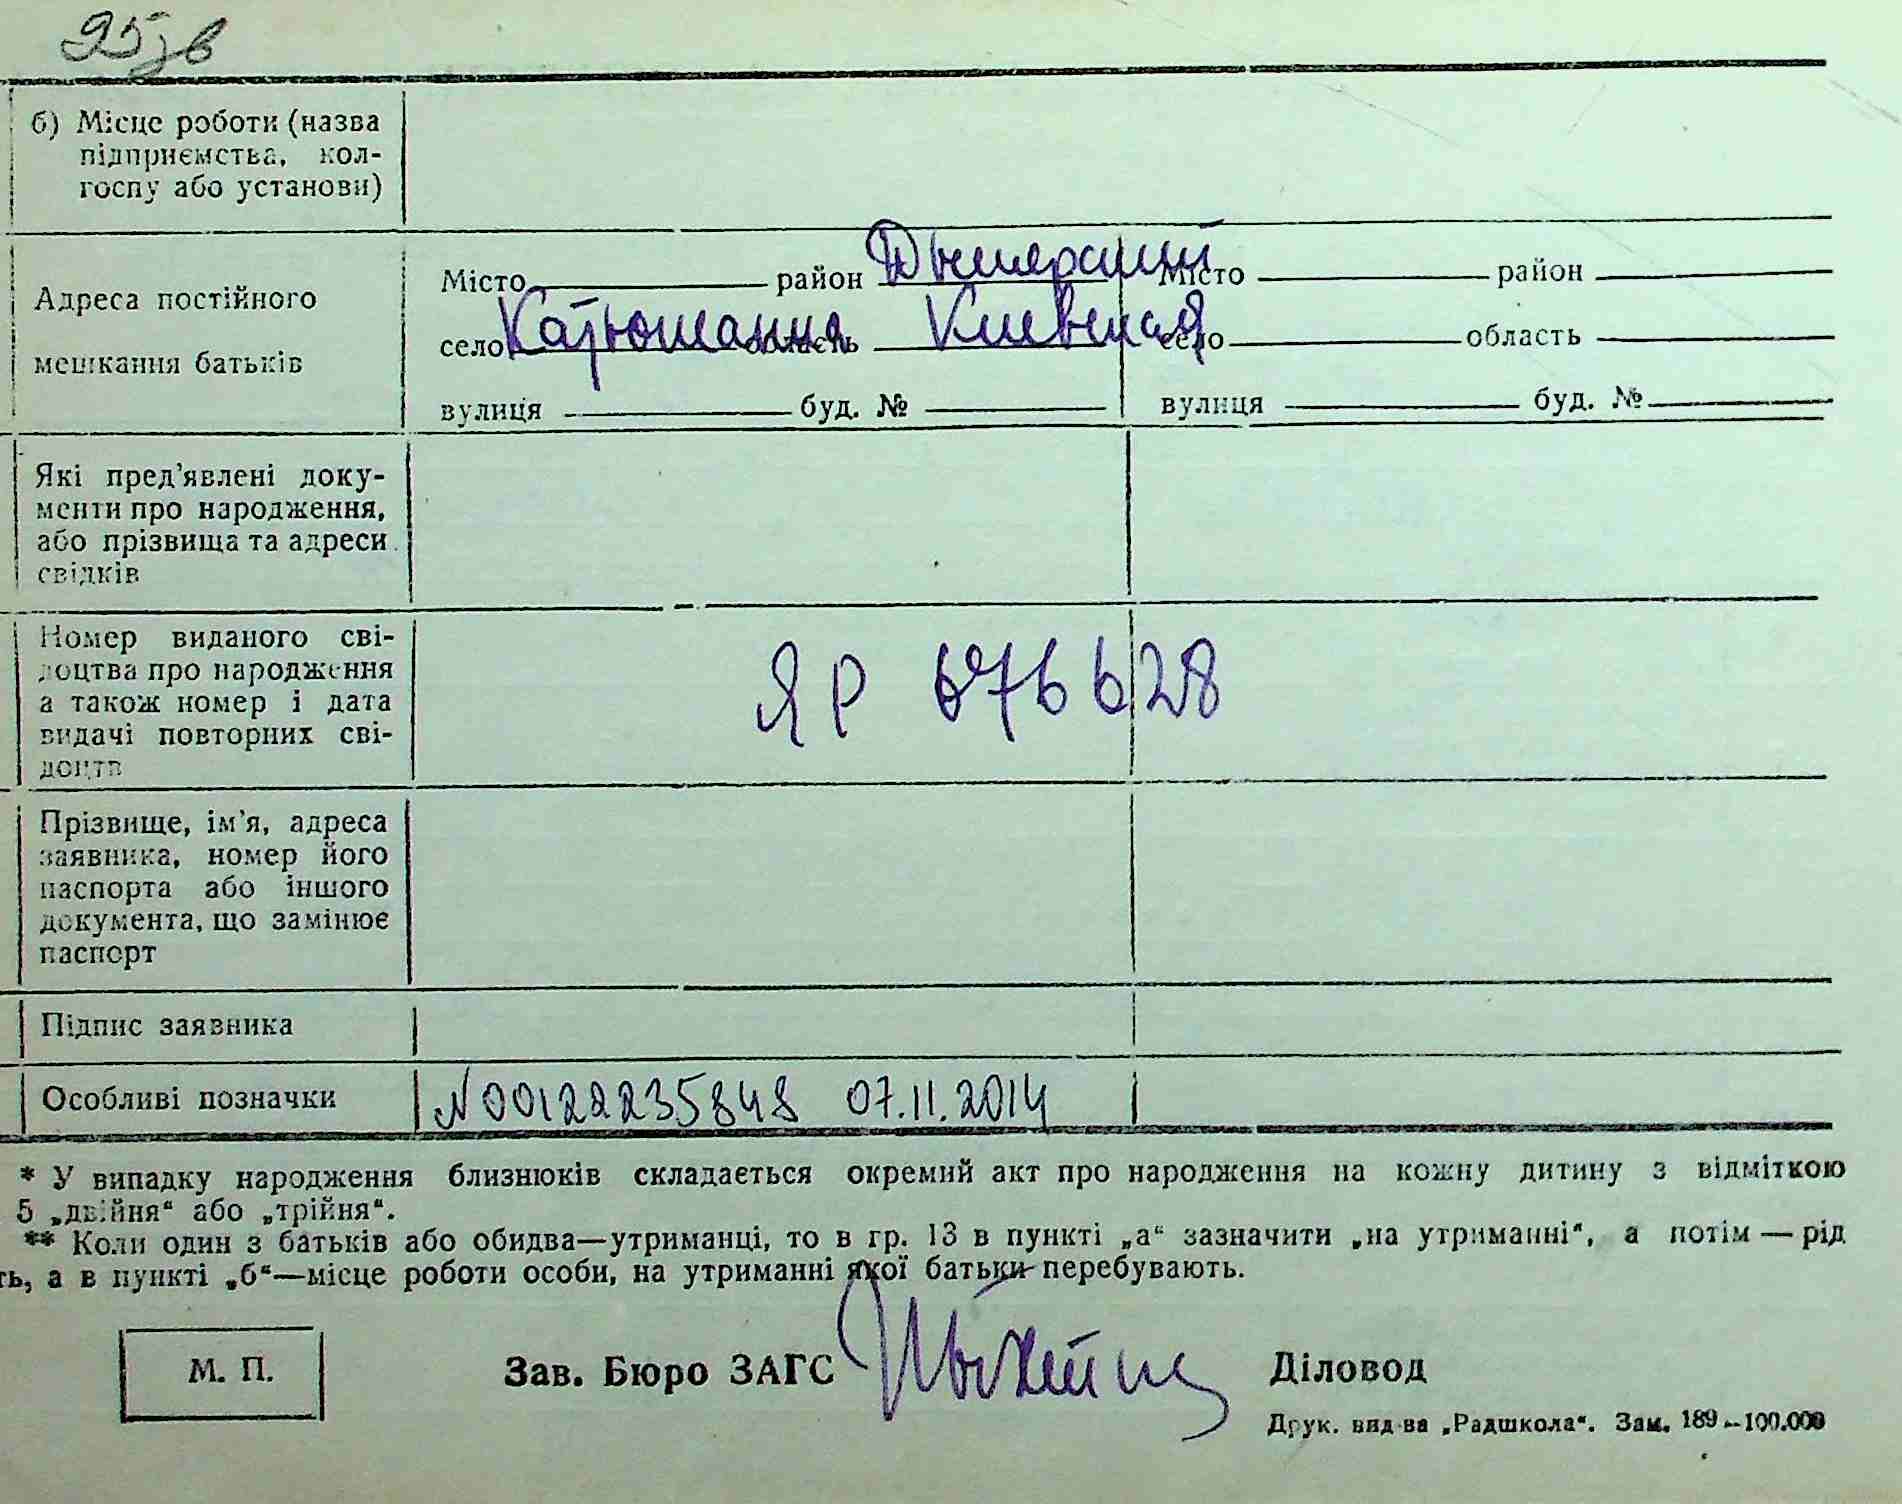 95зв
б) Місце роботи (назва
підприємства, кол-
госпу або установи)
Адреса постійного
мешкання батьків
Місто район Дымерский
село Катюжанка область Киевская
вулиця буд. №
Місто район
село область
вулиця буд. №
Які пред'явлені доку-
менти про народження,
або прізвища та адреси
свідків
Номер виданого сві-
доцтва про народження
а також номер і дата
видачі повторних сві-
доцтв
ЯР 676628
Прізвище, ім'я, адреса
заявника, номер його
паспорта або іншого
документа, що замінює
паспорт
Підпис заявника
Особливі позначки
N00122235848 07.11.2014
* У випадку народження близнюків складається окремий акт про народження на кожну дитину з відміткою
5 „двійня“ або „трійня“.
** Коли один з батьків або обидва—утриманці, то в гр. 13 в пункті „а“ зазначити „на утриманні“, а потім — рід
ть, а в пункті „б“—місце роботи особи, на утриманні якої батьки перебувають.
М. П.
Зав. Бюро ЗАГС
Діловод
Друк. вид-ва „Радшкола“. Зам. 189—100.000